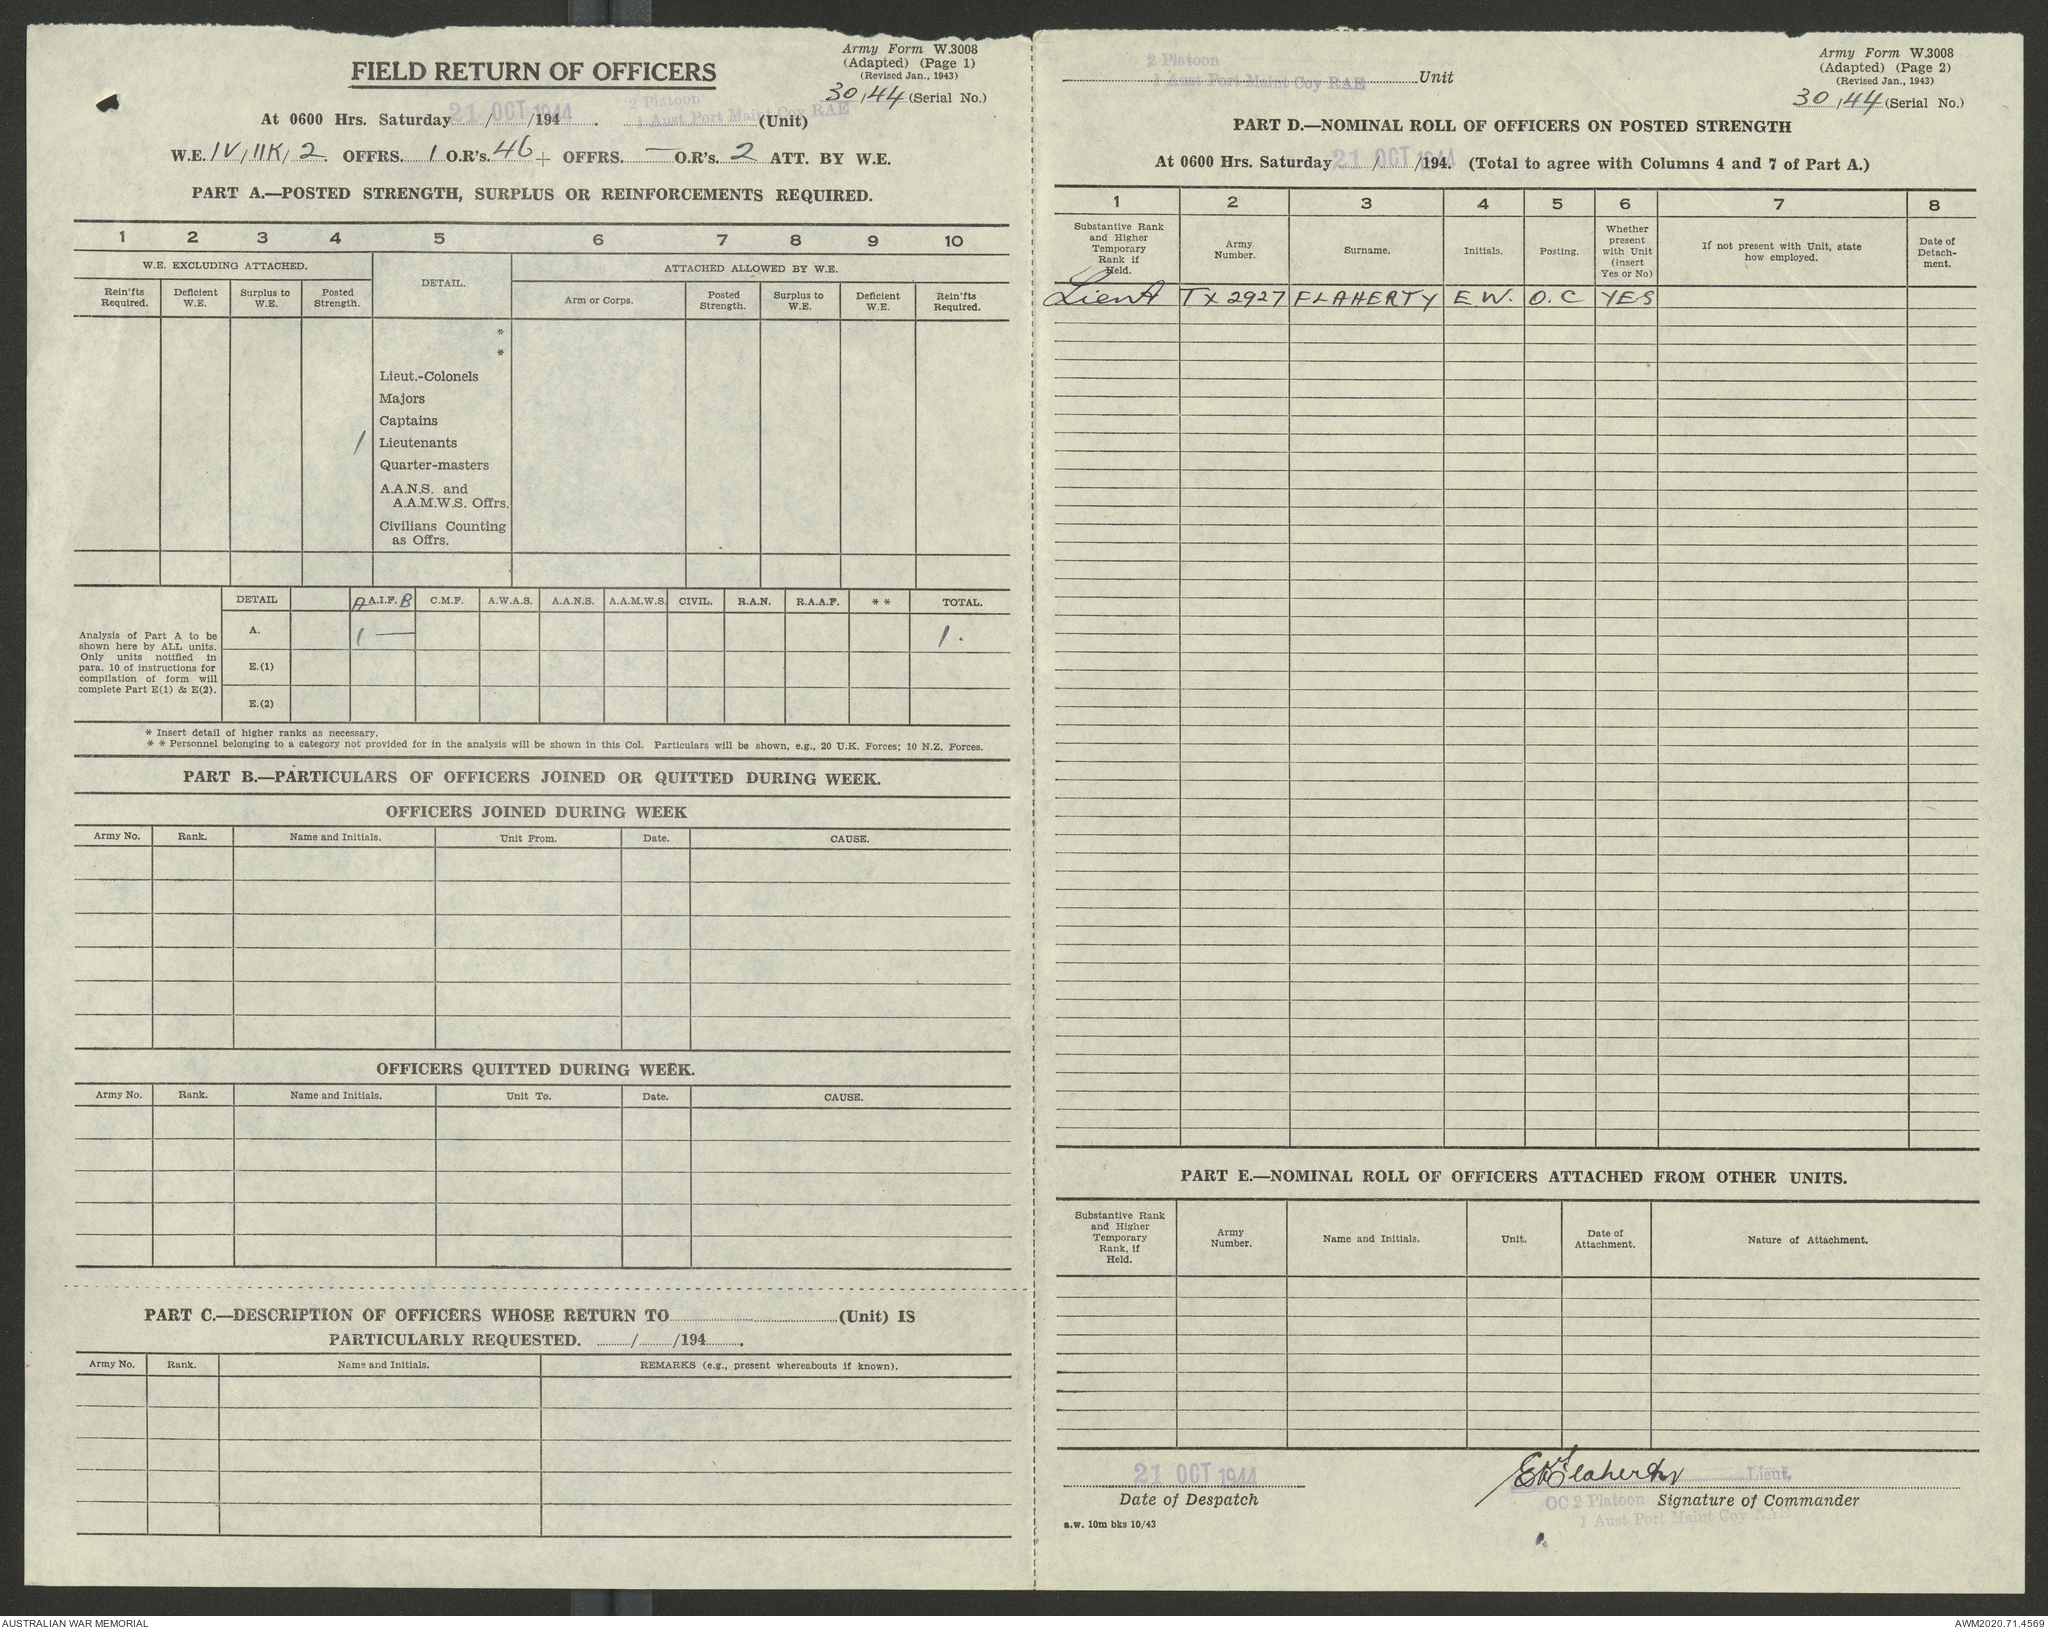 Army Form W.3008
(Adapted) (Page 1)
(Revised Jan., 1943)
FIELD RETURN OF OFFICERS
30/44 (Serial No.)
At 0600 Hrs. Saturday 21 OCT 1944 / /194 . 2 Platoon 1 Aust Port Maint Coy RAE (Unit)
W.E. IV/11K/2. OFFRS. 1 O.R's. 46 + OFFRS. — O.R's. 2 ATT. BY W.E.
PART A.—POSTED STRENGTH, SURPLUS OR REINFORCEMENTS REQUIRED.
1 2 3 4 5 6 7 8 9 10
W.E. EXCLUDING ATTACHED. DETAIL. ATTACHED ALLOWED BY W.E.
Rein'fts Required. Deficient W.E. Surplus to W.E. Posted Strength. Arm or Corps. Posted Strength. Surplus to W.E. Deficient W.E. Rein'fts Required.
*
*
Lieut.-Colonels
Majors
Captains
1 Lieutenants
Quarter-masters
A.A.N.S. and
A.A.M.W.S. Offrs.
Civilians Counting
as Offrs.
DETAIL A A.I.F. B C.M.F. A.W.A.S. A.A.N.S. A.A.M.W.S. CIVIL. R.A.N. R.A.A.F. * * TOTAL.
Analysis of Part A to be
shown here by ALL units.
Only units notified in
para. 10 of instructions for
compilation of form will
complete Part E(1) & E(2).
A. 1 — 1.
E.(1)
E.(2)
* Insert detail of higher ranks as necessary.
* * Personnel belonging to a category not provided for in the analysis will be shown in this Col. Particulars will be shown, e.g., 20 U.K. Forces; 10 N.Z. Forces.
PART B.—PARTICULARS OF OFFICERS JOINED OR QUITTED DURING WEEK.
OFFICERS JOINED DURING WEEK
Army No. Rank. Name and Initials. Unit From. Date. CAUSE.
OFFICERS QUITTED DURING WEEK.
Army No. Rank. Name and Initials. Unit To. Date. CAUSE.
PART C.—DESCRIPTION OF OFFICERS WHOSE RETURN TO (Unit) IS
PARTICULARLY REQUESTED. / /194 .
Army No. Rank. Name and Initials. REMARKS (e.g., present whereabouts if known).
Army Form W.3008
(Adapted) (Page 2)
(Revised Jan., 1943)
30/44 (Serial No.)
2 Platoon
1 Aust Port Maint Coy RAE Unit
PART D.—NOMINAL ROLL OF OFFICERS ON POSTED STRENGTH
At 0600 Hrs. Saturday 21 OCT 1944 / /194. (Total to agree with Columns 4 and 7 of Part A.)
1 2 3 4 5 6 7 8
Substantive Rank and Higher Temporary Rank if Held. Army Number. Surname. Initials. Posting. Whether present with Unit (insert Yes or No) If not present with Unit, state how employed. Date of Detach-ment.
Lieut TX 2927 FLAHERTY E W. O.C YES
PART E.—NOMINAL ROLL OF OFFICERS ATTACHED FROM OTHER UNITS.
Substantive Rank and Higher Temporary Rank, if Held. Army Number. Name and Initials. Unit. Date of Attachment. Nature of Attachment.
21 OCT 1944 EWFlaherty Lieut.
Date of Despatch OC 2 Platoon Signature of Commander
1 Aust Port Maint Coy RAE
a.w. 10m bks 10/43
AUSTRALIAN WAR MEMORIAL AWM2020.71.4569